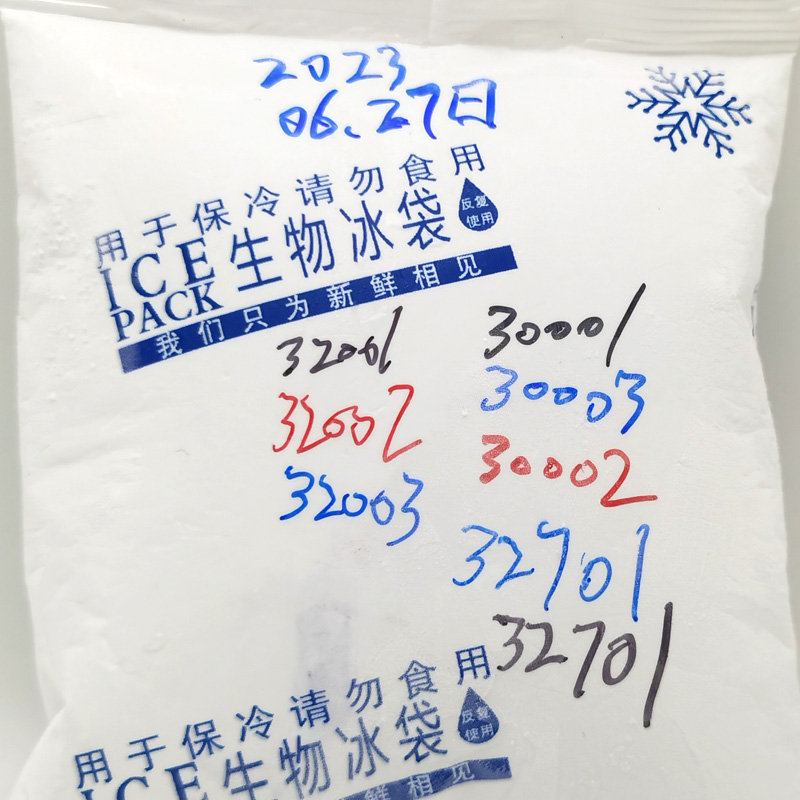 2023
06.27日
用于保冷请勿食用
ICE
PACK
生物冰袋
反复
使用
我们只为新鲜相见
32001
30001
32002
30003
32003
30002
32701
32701
用于保冷请勿食用
ICE
生物冰袋
反复
使用
鲜相见